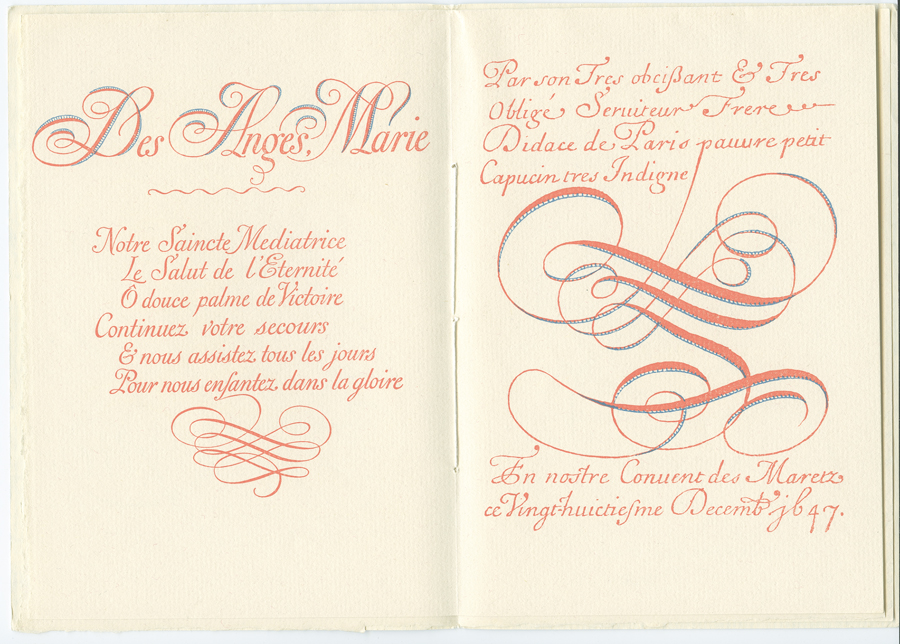 Des Anges, Marie
Notre Saincte Mediatrice
Le Salut de l'Eternité
Ô douce palme de Victoire
Continuez votre secours
& nous assistez tous les jours
Pour nous enfantez dans la gloire
Par son Tres obeißant & Tres
Obligé Seruiteur Frere
Didace de Paris pauure petit
Capucin tres Indigne
En nostre Conuent des Maretz
ce Vingt-huictiesme Decemb 1647.